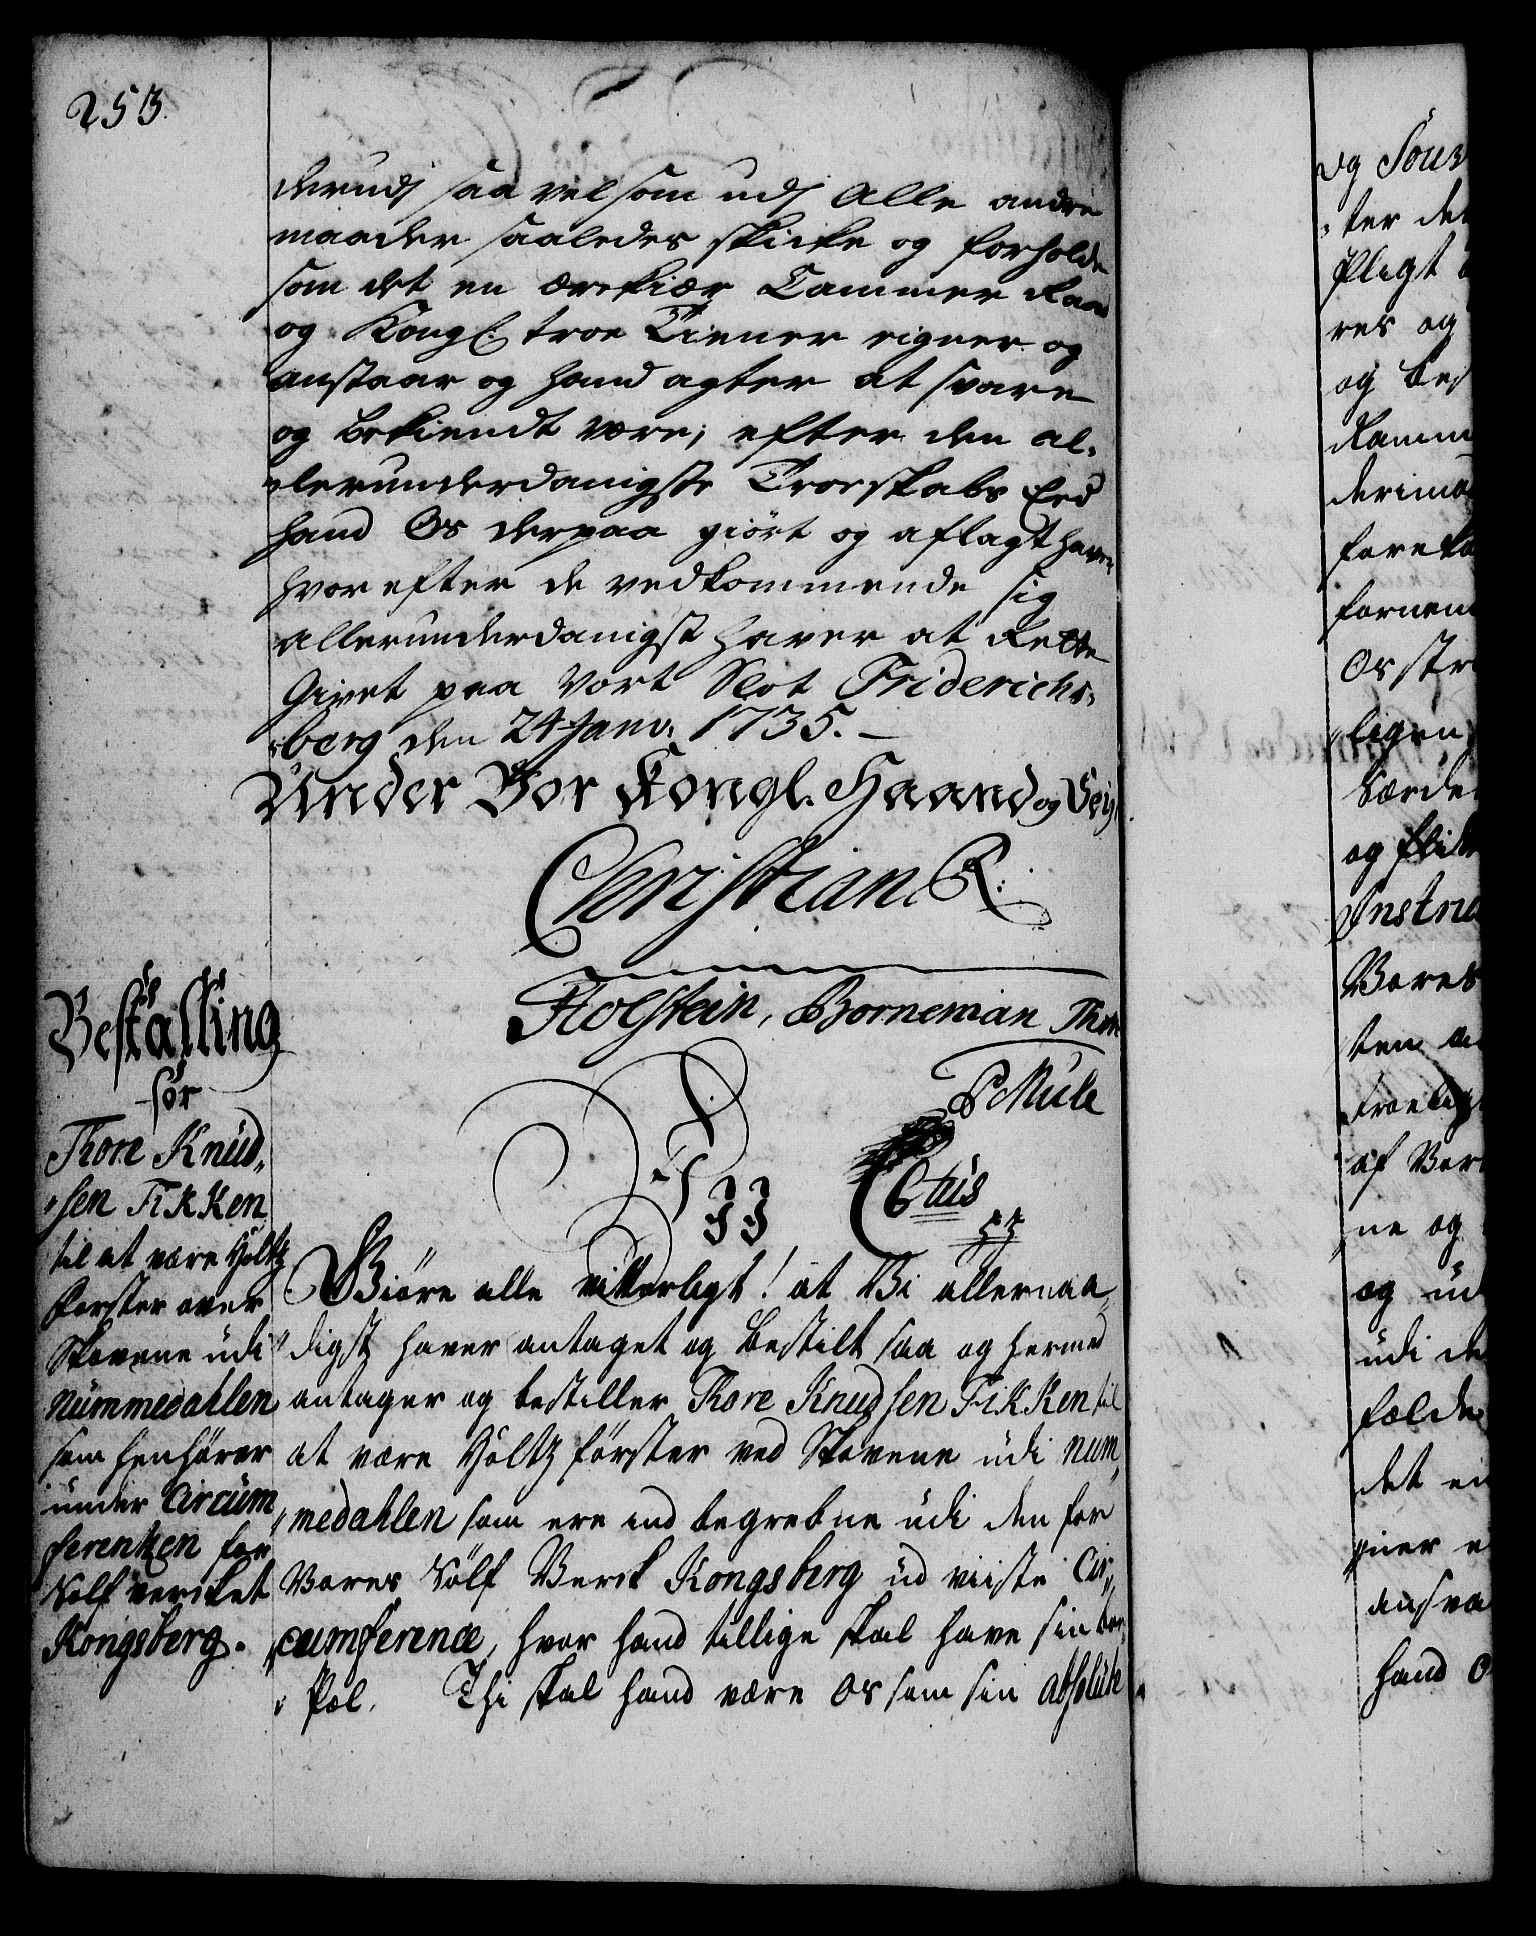 253.
derudj saa vel som udj Alle andre
maader saaledes skicke og forholde
som det en ærekiær Cammer Raad
og Kongl: troe Tiener eigner og
anstaar og hand agter at svare
og bekiendt være; efter den al-
lerunderdanigste Troeskabs Eed
hand Os derpaa giört og aflagt haver
hvorefter de vedkommende sig
allerunderdanigst haver at Rette
Givet paa Vort Slot Friderichs-
berg den 24 Janv: 1735. –
Under Vor Kongl. Haand og Seigl
Christian R:
Holstein, Borneman Thom
P Mule
Bestalling
for
Thore Knud-
sen Fikken
til at være Holtz
Förster over
Skovene udi
Nummedahlen
som henhörer
under Circum
ferenzen for
Sölfverket
Kongsberg.
Giöre alle vitterligt! at Vi allernaa-
digst haver antaget og bestilt saa og hermed
antager og bestiller Thore Knudsen Fikken til
at være Holtz förster ved Skovene udi Num-
medahlen som ere ind begrebne udi den for
Vores Sölf Verck Kongsberg ud viiste Cir-
cumference, hvor hand tillige skal have sin boe-
Pæl. Thi skal hand være Os som sin absolute
og Souv
ter de
Pligt
res og
og bes
Ramm
derimo
forneme
Os str
ligen
Særde
og flid
Instru
Vores
ten
af Vor
ne og
og ud
udi de
fælde
det en
giver e
ansva
hand O